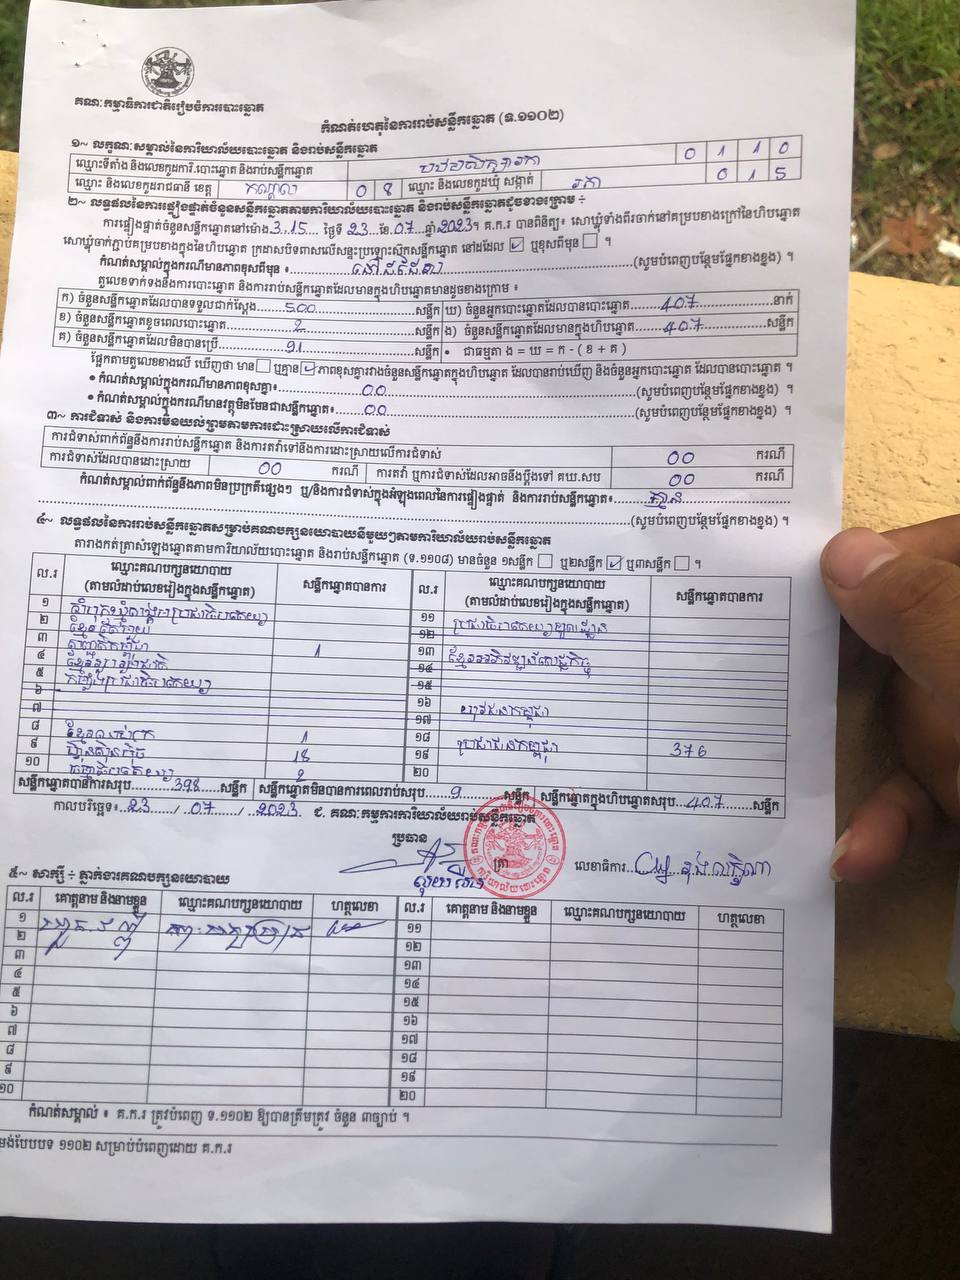 គណៈកម្មាធិការជាតិរៀបចំការបោះឆ្នោត
កំណត់ហេតុនៃការរាប់សន្លឹកឆ្នោត (ទ.១១០២)
១~ លក្ខណៈសម្គាល់នៃការិយាល័យបោះឆ្នោត និងរាប់សន្លឹកឆ្នោត
ឈ្មោះទីតាំង និងលេខកូដការិ.បោះឆ្នោត និងរាប់សន្លឹកឆ្នោត 0 1 1 0
ឈ្មោះ និងលេខកូដរាជធានី ខេត្ត កណ្តាល 0 8 ឈ្មោះ និងលេខកូដឃុំ សង្កាត់ រកា 0 1 5
២~ លទ្ធផលនៃការផ្ទៀងផ្ទាត់ចំនួនសន្លឹកឆ្នោតតាមការិយាល័យបោះឆ្នោត និងរាប់សន្លឹកឆ្នោតដូចខាងក្រោម ÷
ការផ្ទៀងផ្ទាត់ចំនួនសន្លឹកឆ្នោតនៅម៉ោង 3.15 ថ្ងៃទី 23 ខែ 07 ឆ្នាំ 2023។ គ.ក.រ បានពិនិត្យ៖ សោឃ្លុំទាំងពីរចាក់នៅគម្របខាងក្រៅនៃហិបឆ្នោត
សោឃ្លុំចាក់ភ្ជាប់គម្របខាងក្នុងនៃហិបឆ្នោត ក្រដាសបិទពាសលើសន្ទះប្រឡោះស៊ុតសន្លឹកឆ្នោត នៅដដែល ☑ ឬខុសពីមុន ☐ ។
កំណត់សម្គាល់ក្នុងករណីមានភាពខុសពីមុន ៖ នៅដដែល (សូមបំពេញបន្ថែមផ្នែកខាងខ្នង) ។
តួលេខទាក់ទងនឹងការបោះឆ្នោត និងការរាប់សន្លឹកឆ្នោតដែលមានក្នុងហិបឆ្នោតមានដូចខាងក្រោម ៖
ក) ចំនួនសន្លឹកឆ្នោតដែលបានទទួលជាក់ស្តែង 500 សន្លឹក ឃ) ចំនួនអ្នកបោះឆ្នោតដែលបានបោះឆ្នោត 407 នាក់
ខ) ចំនួនសន្លឹកឆ្នោតខូចពេលបោះឆ្នោត 2 សន្លឹក ង) ចំនួនសន្លឹកឆ្នោតដែលមានក្នុងហិបឆ្នោត 407 សន្លឹក
គ) ចំនួនសន្លឹកឆ្នោតដែលមិនបានប្រើ 91 សន្លឹក • ជាធម្មតា ង = ឃ = ក - ( ខ + គ )
ផ្អែកតាមតួលេខខាងលើ ឃើញថា មាន ☐ ឬគ្មាន ☑ ភាពខុសគ្នារវាងចំនួនសន្លឹកឆ្នោតក្នុងហិបឆ្នោត ដែលបានរាប់ឃើញ និងចំនួនអ្នកបោះឆ្នោត ដែលបានបោះឆ្នោត ។
• កំណត់សម្គាល់ក្នុងករណីមានភាពខុសគ្នា៖ 00 (សូមបំពេញបន្ថែមផ្នែកខាងខ្នង) ។
• កំណត់សម្គាល់ក្នុងករណីមានវត្ថុមិនមែនជាសន្លឹកឆ្នោត៖ 00 (សូមបំពេញបន្ថែមផ្នែកខាងខ្នង) ។
៣~ ការជំទាស់ និងការមិនយល់ព្រមតាមការដោះស្រាយលើការជំទាស់
ការជំទាស់ពាក់ព័ន្ធនឹងការរាប់សន្លឹកឆ្នោត និងការតវ៉ាទៅនឹងការដោះស្រាយលើការជំទាស់ 00 ករណី
ការជំទាស់ដែលបានដោះស្រាយ 00 ករណី ការតវ៉ា ឬការជំទាស់ដែលអាចនឹងប្តឹងទៅ គឃ.សប 00 ករណី
កំណត់សម្គាល់ពាក់ព័ន្ធនឹងភាពមិនប្រក្រតីផ្សេងៗ ឬ/និងការជំទាស់ក្នុងអំឡុងពេលនៃការផ្ទៀងផ្ទាត់ និងការរាប់សន្លឹកឆ្នោត៖ គ្មាន
(សូមបំពេញបន្ថែមផ្នែកខាងខ្នង) ។
៤~ លទ្ធផលនៃការរាប់សន្លឹកឆ្នោតសម្រាប់គណបក្សនយោបាយនីមួយៗតាមការិយាល័យរាប់សន្លឹកឆ្នោត
តារាងកត់ត្រាសំឡេងឆ្នោតតាមការិយាល័យបោះឆ្នោត និងរាប់សន្លឹកឆ្នោត (ទ.១១០៨) មានចំនួន ១សន្លឹក ☐ ឬ២សន្លឹក ☑ ឬ៣សន្លឹក ☐ ។
ល.រ ឈ្មោះគណបក្សនយោបាយ (តាមលំដាប់លេខរៀងក្នុងសន្លឹកឆ្នោត) សន្លឹកឆ្នោតបានការ ល.រ ឈ្មោះគណបក្សនយោបាយ (តាមលំដាប់លេខរៀងក្នុងសន្លឹកឆ្នោត) សន្លឹកឆ្នោតបានការ
១ ១១
២ ១២
៣ 1 ១៣
៤ ១៤
៥ ១៥
៦ ១៦
៧ ១៧
៨ 1 ១៨ ប្រជាជនកម្ពុជា 376
៩ ហ៊្វុនស៊ិនប៉ិច 18 ១៩
១០ 2 ២០
សន្លឹកឆ្នោតបានការសរុប 398 សន្លឹក សន្លឹកឆ្នោតមិនបានការពេលរាប់សរុប 9 សន្លឹក សន្លឹកឆ្នោតក្នុងហិបឆ្នោតសរុប 407 សន្លឹក
កាលបរិច្ឆេទ៖ 23 / 07 / 2023 ជ. គណៈកម្មការការិយាល័យរាប់សន្លឹកឆ្នោត
ប្រធាន
ត្រា លេខាធិការ
៥~ សាក្សី ÷ ភ្នាក់ងារគណបក្សនយោបាយ
ល.រ គោត្តនាម និងនាមខ្លួន ឈ្មោះគណបក្សនយោបាយ ហត្ថលេខា ល.រ គោត្តនាម និងនាមខ្លួន ឈ្មោះគណបក្សនយោបាយ ហត្ថលេខា
១ ១១
២ ១២
៣ ១៣
៤ ១៤
៥ ១៥
៦ ១៦
៧ ១៧
៨ ១៨
៩ ១៩
១០ ២០
កំណត់សម្គាល់ ៖ គ.ក.រ ត្រូវបំពេញ ទ.១១០២ ឱ្យបានត្រឹមត្រូវ ចំនួន ៣ច្បាប់ ។
ទម្រង់បែបបទ ១១០២ សម្រាប់បំពេញដោយ គ.ក.រ